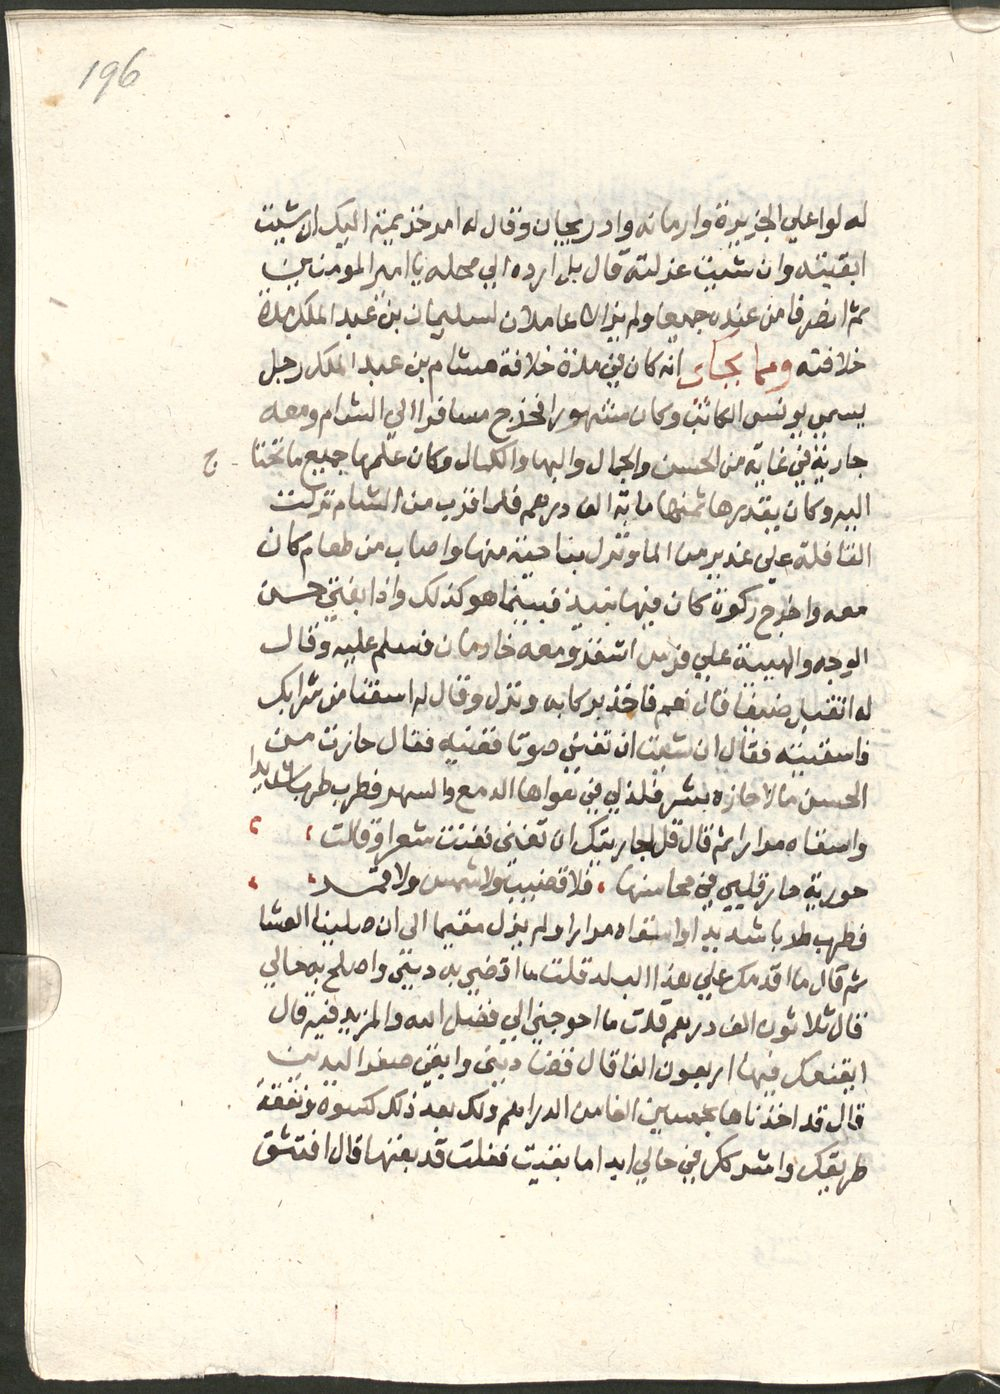 196
له لواعلي الجزيرة وارمانه وادربيجان وقال له امر خذيمة اليك ان شيت
ابقيته وان شيت عزلته قال بل ارده الي محله يا امير المومنين
ثم انصرفا من عنده جميعا ولم يزالا عاملان لسليمان بن عبد الملك مدة
خلافته ومما يحكى انه كان في مدة خلافة هشام بن عبد الملك رجل
يسمى يونس الكاتب وكان مشهورا فخرج مسافرا الي الشام ومعه
جارية في غاية من الحسن والجمال والبها والكمال وكان علمها جميع ما تحتا ج
اليه وكان يقدر ها ثمنها ماية الف درهم فلما قرب من الشام نزلت
القافلة علي غدير من الما ونزل بناحية منها واصاب من طعام كان
معه واخرج ركوة كان فيها نبيذ فبينما هو كذلك واذا بفتي حسن
الوجه والهيبة علي فرس اشقر ومعه خادمان فسلم عليه وقال
له اتقبل ضيفا قال نعم فاخذ بركابه ونزل وقال له اسقنا من شرابك
فاسقيته فقال ان شيت ان تغني صوتا فغنيه فقال حازت من
الحسن مالا حازه بشر فلذ لي في هواها الدمع والسهر فطرب طربا شديدا
واسقاه مرارا ثم قال قل لجاريتك ان تغني فغنت شعرا وقالت
حورية حار قلبي في محاسنها فلا قضيب ولا شمس ولا قمر
فطرب طربا شديدا واسقاه مرارا ولم يزل مقيما الى ان صلينا العشا
ثم قال ما اقدمك علي هذا البلد قلت ما اقضي به ديني واصلح به حالي
قال ثلاثون الف درهم قلت ما احوجني الي فضل الله والمزيد فيه قال
ايقنعك فيها اربعون الفا قال فقضا ديني وابقي صفر اليدين
قال قد اخذناها بخمسين الفا من الدراهم ولك بعد ذلك كسوة ونفقة
طريقك واشركك في حالي ابدا ما بقيت فقلت قد بعتها قال افتثق